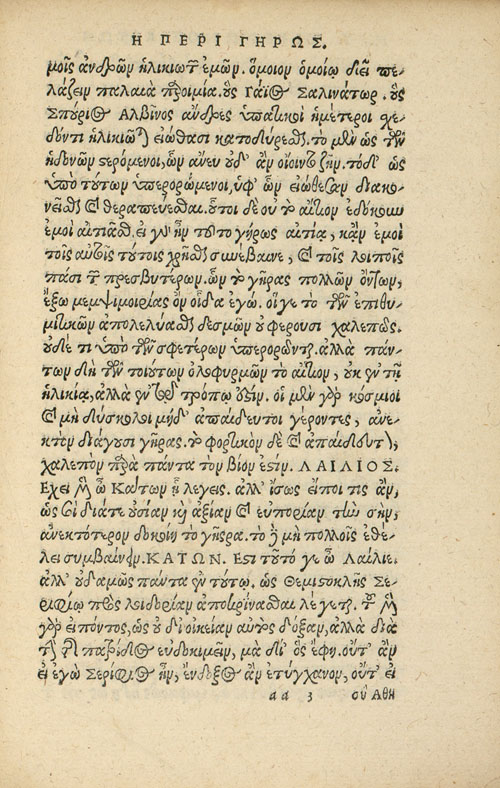 Η ΠΕΡΙ ΓΗΡΩΣ.
μοῖς ἀνδρῶν ἡλικιωτῶν ἐμῶν. ὅμοιον ὁμοίῳ διεῖ πε-
λάζειν παλαιὰ παροιμία. οὓς Γάϊος Σαλινάτωρ. οὓς
Σπύριος Αλβῖνος ἄνδρες ὑπατικοὶ ἡμέτεροι χε-
δόντι ἡλικιῶται εἰώθασι κατοδύρεσθαι. τὸ μὲν ὡς τῶν
ἡδονῶν στερόμενοι, ὧν ἄνευ οὐδ' ἂν οἴοιντο ζῆν. τὸ δ' ὡς
ὑπὸ τούτων ὑπερορώμενοι, ὑφ' ὧν εἰώθεσαν διακο-
νεῖσθαι καὶ θεραπεύεσθαι. οὗτοι δὲ οὐ τὸ αἴτιον ἐδόκουν
ἐμοὶ αἰτιᾶσθαι. εἰ γὰρ ἦν τοῦτο γήρως αἰτία, κἂν ἐμοὶ
τοῖς αὐτοῖς τούτοις χρῆσθαι συνέβαινε, καὶ τοῖς λοιποῖς
πᾶσι τῶν πρεσβυτέρων. ὧν τὸ γῆρας πολλῶν ὄντων,
ἔξω μεμψιμοιρίας ὂν οἶδα ἐγώ. οἵ γε τὸ τῶν ἐπιθυ-
μιτικῶν ἀπολελύσθαι δεσμῶν οὐ φέρουσι χαλεπῶς.
οὐδέ τι ὑπὸ τῶν σφετέρων ὑπερορῶνται. ἀλλὰ πάν-
των δὴ τῶν τοιούτων ὀλοφυρμῶν τὸ αἴτιον, οὐκ ἐν τῇ
ἡλικίᾳ, ἀλλὰ ἐν τῷ τρόπῳ ἐστίν. οἱ μὲν γὰρ κόσμιοι
καὶ μὴ δύσκολοι μηδ' ἀπαίδευτοι γέροντες, ἀνε-
κτὸν διάγουσι γῆρας. τὸ φορτικὸν δὲ καὶ ἀπαίδευτον,
χαλεπὸν παρὰ πάντα τὸν βίον ἐστίν. ΛΑΙΛΙΟΣ.
Εχει μὲν ὦ Κάτων ᾗ λέγεις. ἀλλ' ἴσως εἴποι τις ἂν,
ὡς σοὶ διά τε οὐσίαν καὶ ἀξίαν καὶ εὐπορίαν τὴν σὴν,
ἀνεκτότερον δοκοίη τὸ γῆρας. τὸ δὲ μὴ πολλοῖς ἐθέ-
λει συμβαίνειν. ΚΑΤΩΝ. Εστι τοῦτό γε ὦ Λαίλιε.
ἀλλ' οὐδαμῶς πάντα ἐν τούτῳ. ὡς Θεμιστοκλῆς Σε-
ριφίῳ πρὸς λοιδορίαν ἀποκρίνασθαι λέγεται. τοῦ μὲν
γὰρ εἰπόντος, ὡς οὐ δι' οἰκείαν αὐτὸς δόξαν, ἀλλὰ διὰ
τὴν τῆς πατρίδος εὐδοκιμεῖν, μὰ δί' ὃς ἔφη. οὔτ' ἂν
εἰ ἐγὼ Σερίφιος ἦν, ἔνδοξος ἂν ἐτύγχανον, οὔτ' εἰ
aa 3 σὺ Αθη